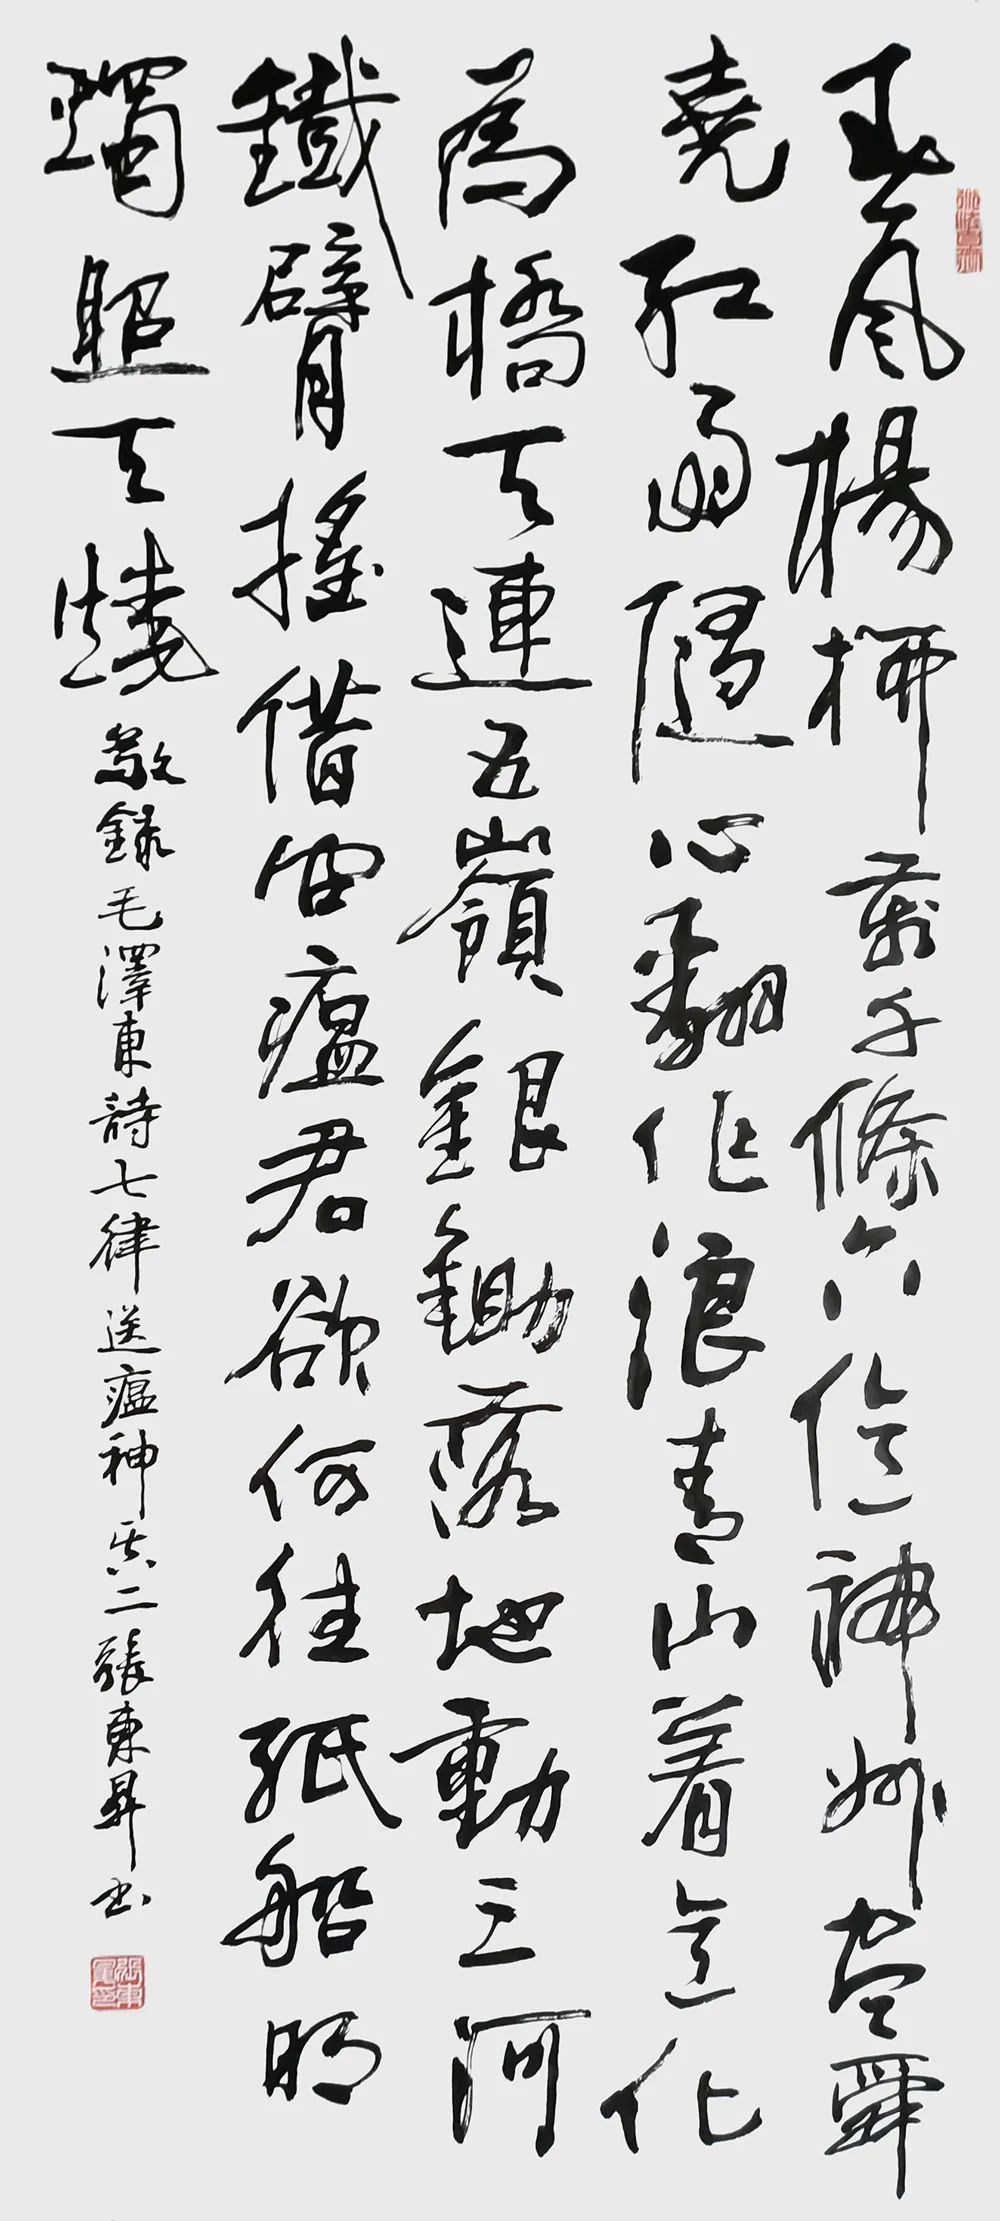 春風楊柳萬千條六億神州盡舜
堯紅雨隨心翻作浪青山着意化
為橋天連五嶺銀鋤落地動三河
鐵臂搖借問瘟君欲何往紙船明
燭照天燒
敬錄毛澤東詩七律送瘟神其二張東昇書